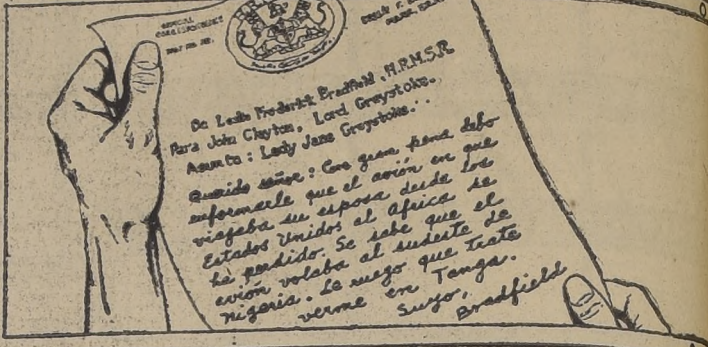 OFFICIAL
CORRESPONDENCE
De Leslie Frederick Bradfield, H.R.M.S.R.
Para John Clayton, Lord Greystoke.
Asunto: Lady Jane Greystoke.
Querido señor: Con gran pena debo
informarle que el avión en que
viajaba su esposa desde los
Estados Unidos al Africa se
ha perdido. Se sabe que el
avión volaba al sudeste de
Nigeria. Le ruego que trate
verme en Tanga.
Suyo,
Bradfield